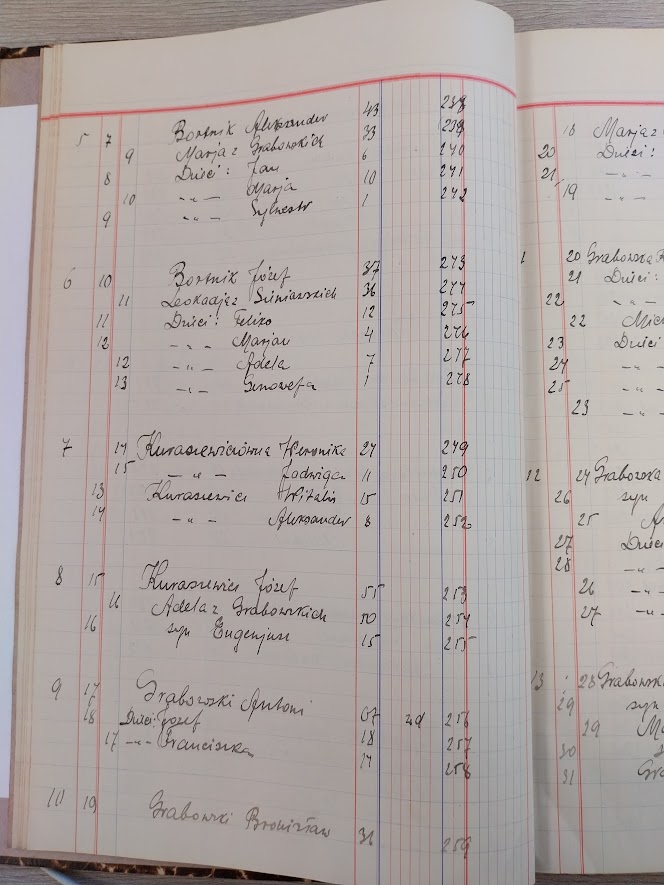 5 7 Bortnik Aleksander 43 238
9 Marja z Grabowskich 33 239
8 Dzieci: Jan 6 240
10 -„- Marja 10 241
9 -„- Sylwestr 1 242
6 10 Bortnik Józef 37 243
11 Leokadja z Siniarskich 36 244
11 Dzieci: Felixo 12 245
12 -„- Marjan 4 246
12 -„- Adela 7 247
13 -„- Genowefa 1 248
7 14 Kurasiewiczówna Weronika 24 249
15 -„- Jadwiga 11 250
13 Kurasiewicz Witalis 15 251
14 -„- Aleksander 8 252
8 15 Kurasiewicz Józef 55 253
16 Adela z Grabowskich 50 254
16 syn Eugenjusz 15 255
9 17 Grabowski Antoni 67 zd 256
18 Dzieci: Józef 18 257
17 -„- Franciszka 14 258
10 19 Grabowski Bronisław 31 259
18 Marja z
20 Dzieci:
21 -„-
19 -„-
1 20 Grabowska
21 Dzieci:
22 -„-
22 Mich
23 Dzieci
24 -„-
25 -„-
23 -„-
12 24 Grabowska
26 syn
25 A
27 Dzieci
28 -„-
26 -„-
27 -„-
13 28 Grabowsk
29 syn
29 Ma
30
31 Gra